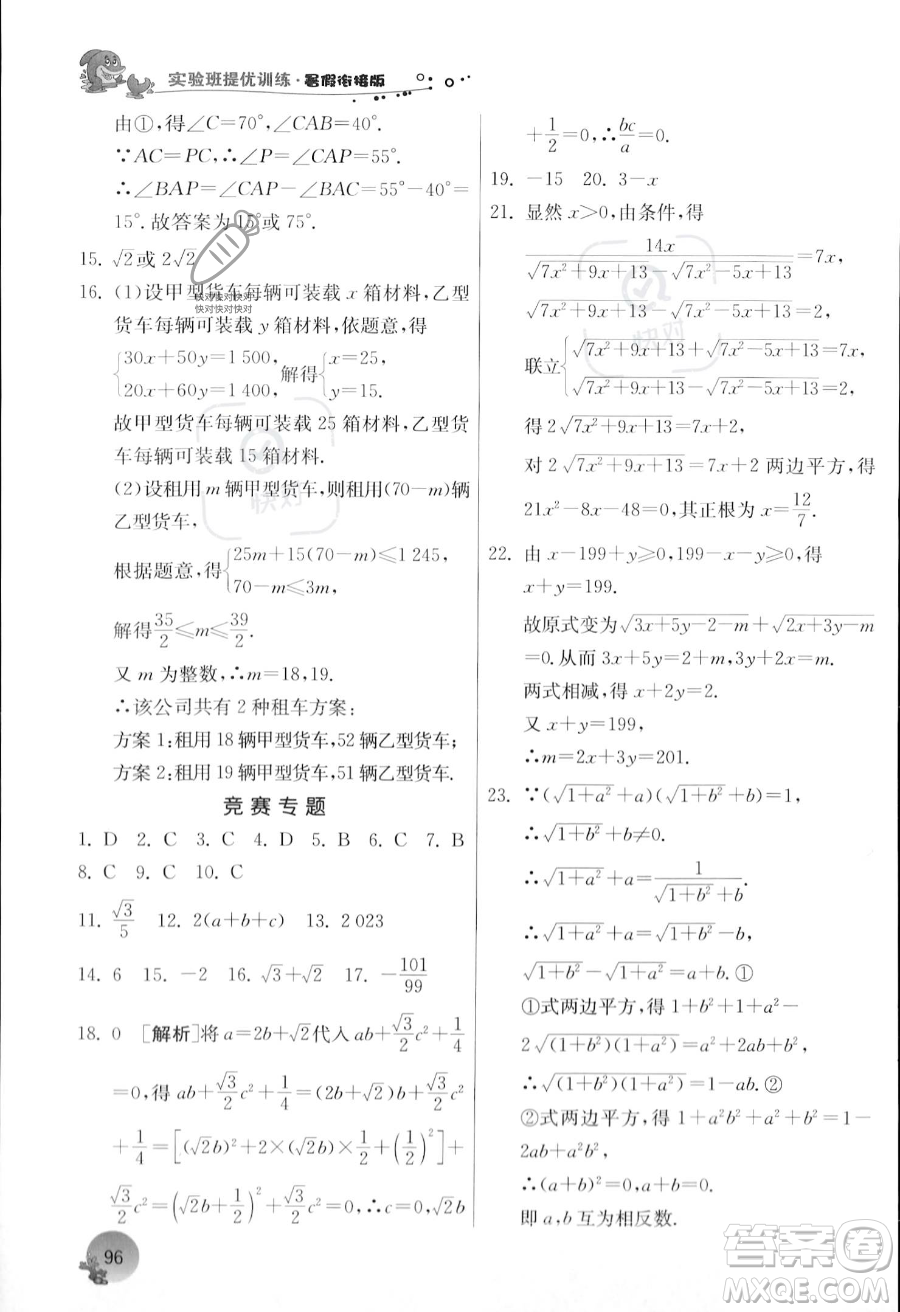 实验班提优训练·暑假衔接版
由①,得∠C=70°,∠CAB=40°.
∵AC=PC,∴∠P=∠CAP=55°.
∴∠BAP=∠CAP-∠BAC=55°-40°=
15°.故答案为15°或75°.
15. √2或2√2
16. (1)设甲型货车每辆可装载x箱材料,乙型
货车每辆可装载y箱材料,依题意,得
{30x+50y=1 500, 20x+60y=1 400, 解得{x=25, y=15.
故甲型货车每辆可装载25箱材料,乙型货
车每辆可装载15箱材料.
(2)设租用m辆甲型货车,则租用(70-m)辆
乙型货车,
根据题意,得{25m+15(70-m)≤1 245, 70-m≤3m,
解得35/2≤m≤39/2.
又m为整数,∴m=18,19.
∴该公司共有2种租车方案:
方案1:租用18辆甲型货车,52辆乙型货车;
方案2:租用19辆甲型货车,51辆乙型货车.
竞赛专题
1. D 2. C 3. C 4. D 5. B 6. C 7. B
8. C 9. C 10. C
11. √3/5 12. 2(a+b+c) 13. 2 023
14. 6 15. -2 16. √3+√2 17. -101/99
18. 0 [解析]将a=2b+√2代入ab+√3/2c²+1/4
=0,得ab+√3/2c²+1/4=(2b+√2)b+√3/2c²
+1/4=[(√2b)²+2×(√2b)×1/2+(1/2)²]+
√3/2c²=(√2b+1/2)²+√3/2c²=0,∴c=0,√2b
+1/2=0,∴bc/a=0.
19. -15 20. 3-x
21. 显然x>0,由条件,得
14x/(√(7x²+9x+13)-√(7x²-5x+13))=7x,
√(7x²+9x+13)-√(7x²-5x+13)=2,
联立{√(7x²+9x+13)+√(7x²-5x+13)=7x, √(7x²+9x+13)-√(7x²-5x+13)=2,
得2√(7x²+9x+13)=7x+2,
对2√(7x²+9x+13)=7x+2两边平方,得
21x²-8x-48=0,其正根为x=12/7.
22. 由x-199+y≥0,199-x-y≥0,得
x+y=199.
故原式变为√(3x+5y-2-m)+√(2x+3y-m)
=0.从而3x+5y=2+m,2x+3y=m.
两式相减,得x+2y=2.
又x+y=199,
∴m=2x+3y=201.
23. ∵(√(1+a²)+a)(√(1+b²)+b)=1,
∴√(1+b²)+b≠0.
∴√(1+a²)+a=1/(√(1+b²)+b).
∴√(1+a²)+a=√(1+b²)-b,
√(1+b²)-√(1+a²)=a+b.①
①式两边平方,得1+b²+1+a²-
2√(1+b²)√(1+a²)=a²+b²+2ab,
∴√(1+b²)√(1+a²)=1-ab.②
②式两边平方,得1+a²b²+a²+b²=1-
2ab+a²b²,
∴(a+b)²=0.∴a+b=0.
即a,b互为相反数.
96
快对快对快对
快对快对快对
快对
快对
答案卷
MXQE.COM